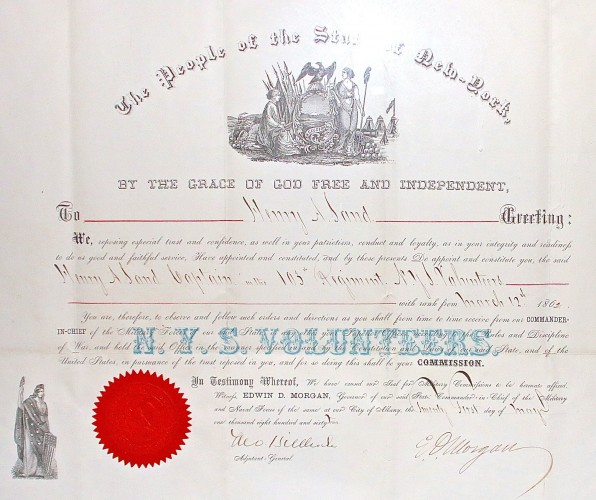 The People of the State of New-York,
BY THE GRACE OF GOD FREE AND INDEPENDENT,
To Henry A Sand Greeting:
We, reposing especial trust and confidence, as well in your patriotism, conduct and loyalty, as in your integrity and readiness
to do us good and faithful service, Have appointed and constituted, and by these presents Do appoint and constitute you, the said
Henry A Sand Captain in the 103d Regiment N.Y.S. Volunteers
with rank from March 13th 186
You are, therefore, to observe and follow such orders and directions as you shall from time to time receive from our COMMANDER-
IN-CHIEF of the Military Forces of our said State, and Discipline
N.Y.S. VOLUNTEERS
of War, and hold the said Office in the State, and of the
United States, in pursuance of the trust reposed in you, and for so doing this shall be your COMMISSION.
In Testimony Whereof, We have caused our Seal for Military Commissions to be hereunto affixed.
Witness, EDWIN D. MORGAN, Governor of our said State, Commander-in-Chief of the Military
and Naval Forces of the same, at our City of Albany, the twenty first day of
one thousand eight hundred and sixty
Adjutant-General
E. D. Morgan